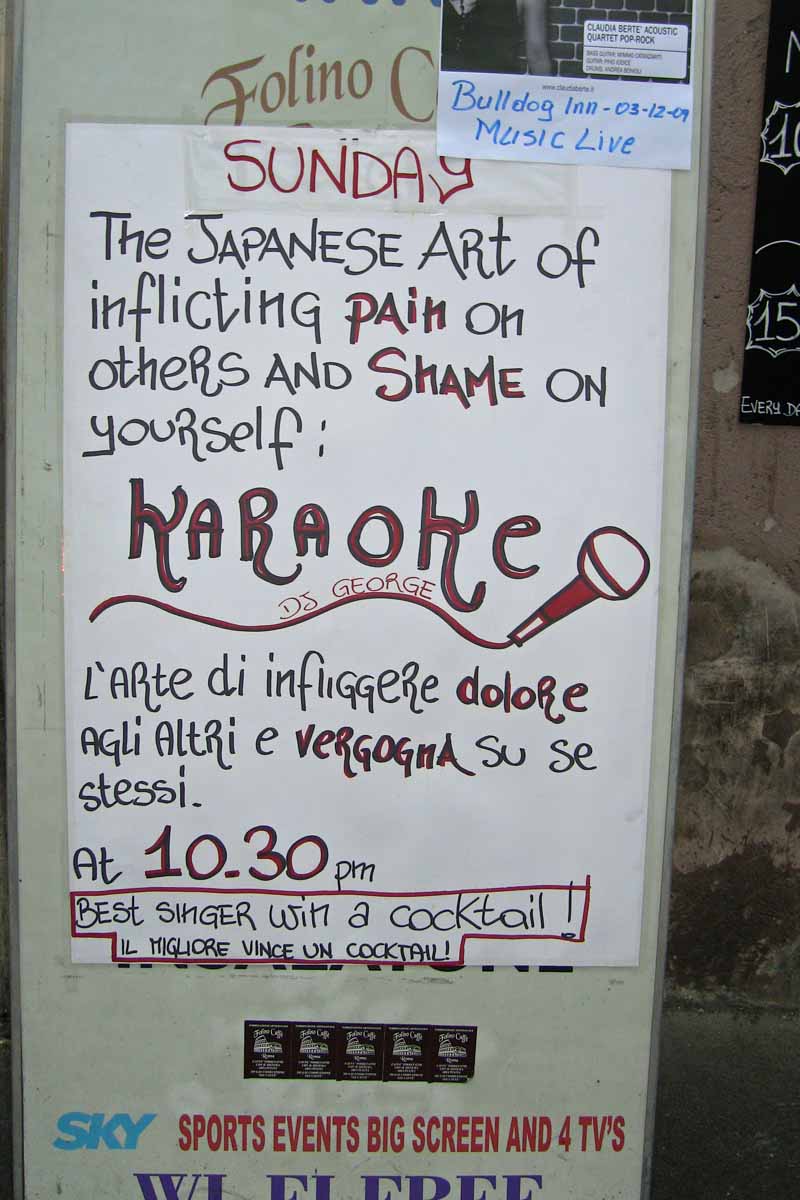 Folino C
CLAUDIA BERTE' ACOUSTIC
QUARTET POP-ROCK
www.claudiaberte.it
Bulldog Inn - 03-12-09
Music Live
SUNDAY
The JAPANESE ART of
inflicting PAin on
otheRS AND SHAME ON
youRself :
KARAOKe
DJ GEORGE
L'ARte di infliggeRe doloRe
AGLi AltRi e VeRGOGnA su se
stessi.
At 10.30 pm
BEST SINGER win a cocktail!
IL MIGLIORE VINCE UN COCKTAIL!
Folino Caffè Folino Caffè Folino Caffè Folino Caffè Folino Caffè
Roma Roma Roma Roma Roma
SKY SPORTS EVENTS BIG SCREEN AND 4 TV'S
WI-FI FREE
10
15
EVERY DA